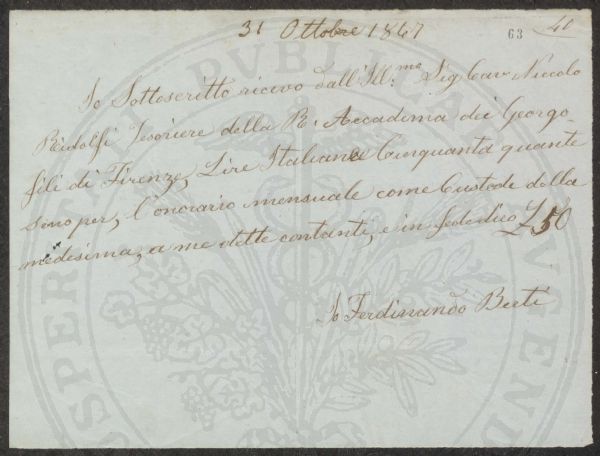 31 Ottobre 1867
63 40
Io Sottoscritto ricevo dall'Ill.mo Sig Cav Niccolo
Ridolfi Tesoriere della R. Accadima dei Georgo-
fili di Firenze, Lire Italiane Cinquanta quante
sono per, l'onorario mensuale come Custode della
medesima, a me dette contanti, e in fede dico £ 50
Io Ferdinando Berti
PROSPERITATI PVBLICAE AVGENDAE